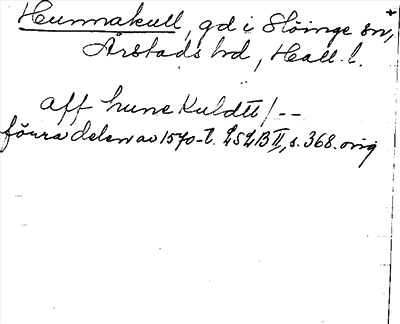 Hunnakull, gd i Slöinge sn,
Årstads hd, Hall. l.
aff hune Kuldtt/--
förra delen av 1570-t. LSLB II, s. 368. orig